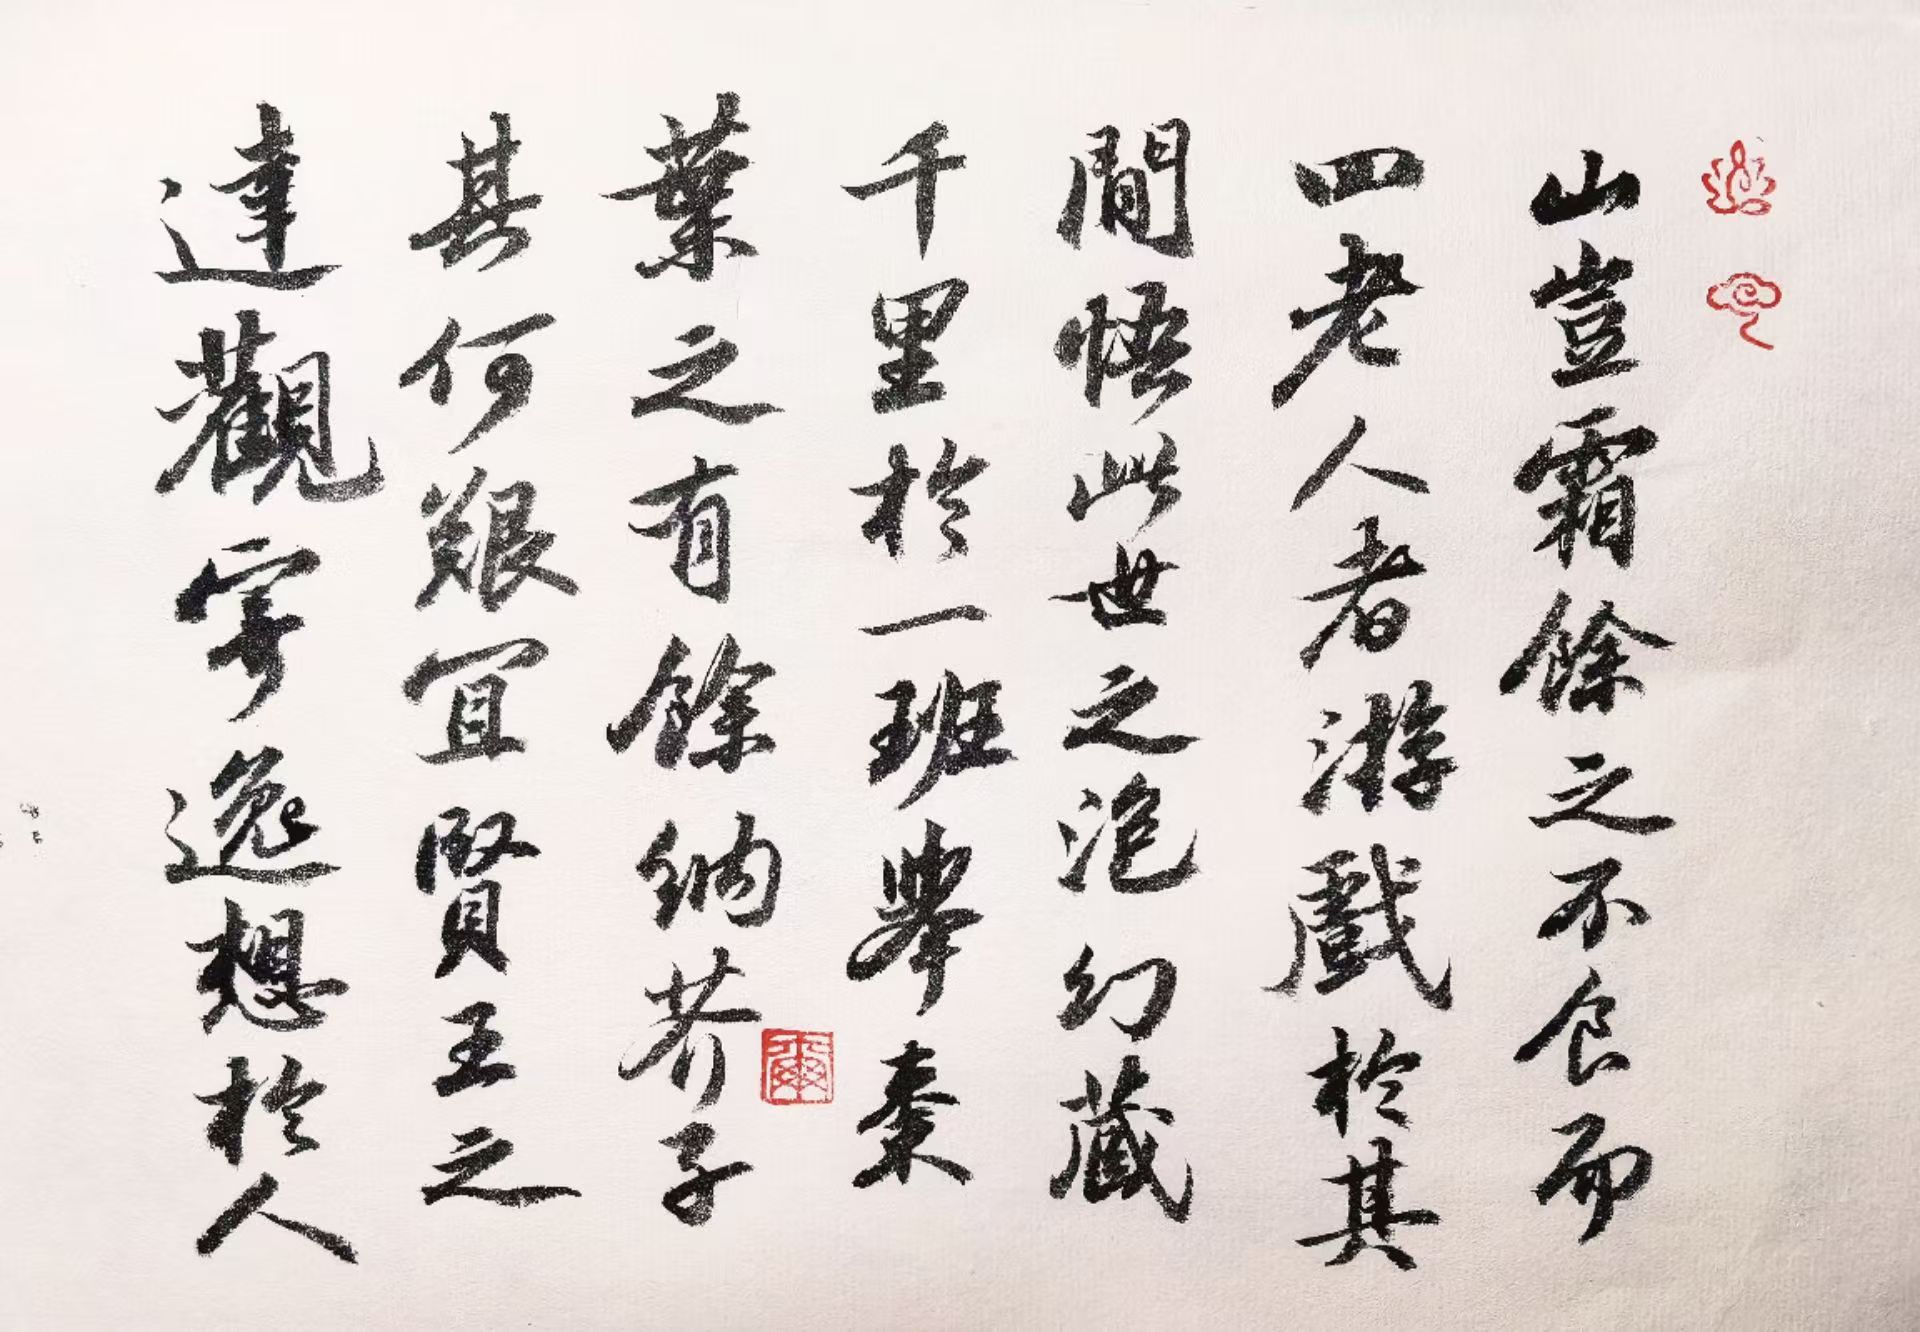 山豈霜餘之不食而
四老人者游戲於其
間悟此世之泡幻藏
千里於一班舉棗
葉之有餘納芥子
其何艱宜賢王之
達觀寄逸想於人